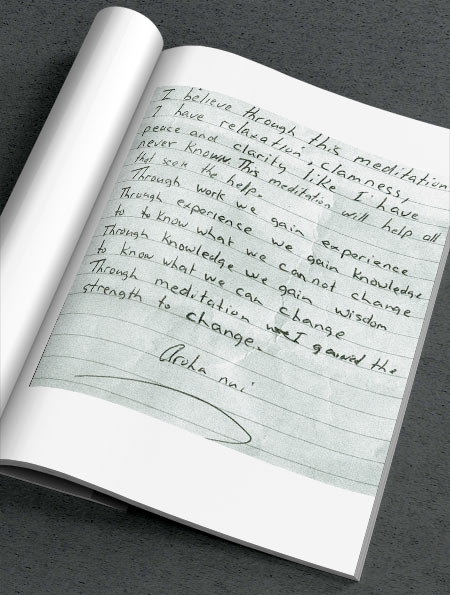 I believe through this meditation
I have relaxation, clamness,
peace and clarity like I have
never known. This meditation will help all
that seek the help.
Through work we gain experience
Through experience we gain knowledge
to to know what we cannot change
Through knowledge we gain wisdom
to know what we can change
Through meditation I gained the
strength to change.
Aroha nui